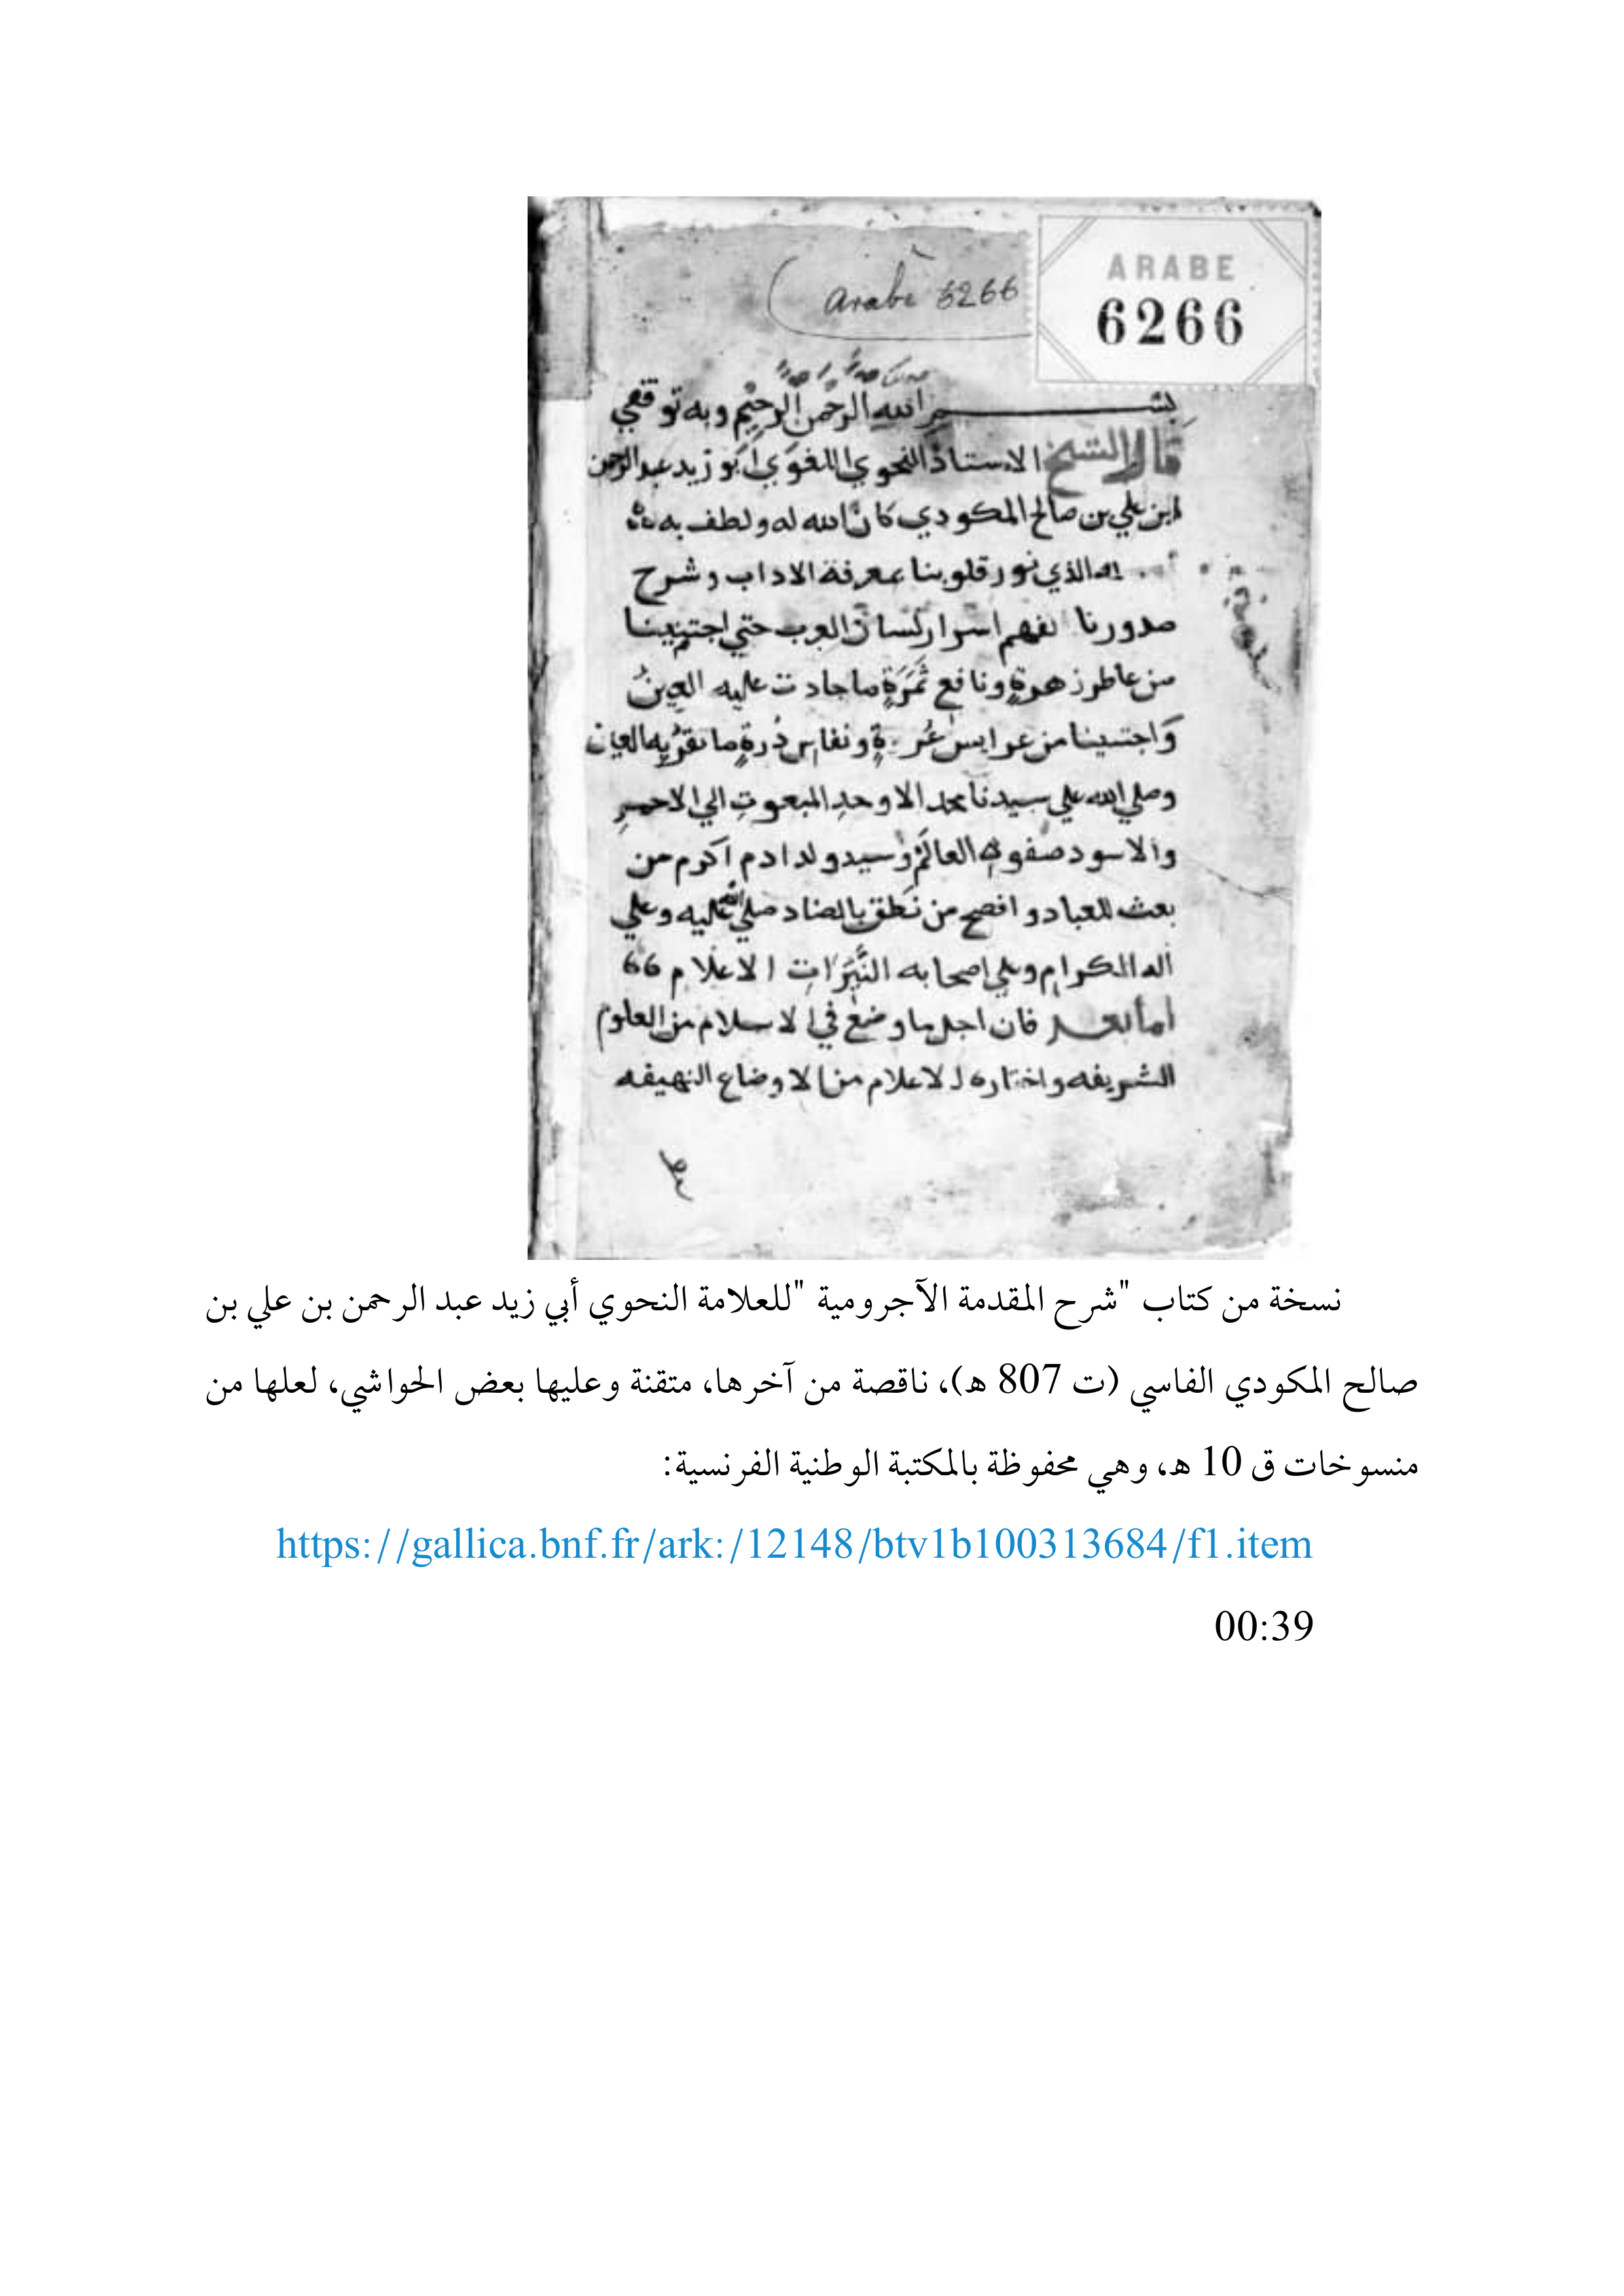 ARABE
6266
arabe 6266
بسم الله الرحمن الرحيم وبه توفيقي
قال الشيخ الاستاذ النحوي اللغوي ابو زيد عبد الرحمن
ابن علي بن صالح المكودي كان الله له ولطف به
الذي نور قلوبنا بمعرفة الاداب وشرح
صدورنا لفهم اسرار لسان العرب حتي اجتنينا
من عاطر زهرةٍ ونافع ثَمَرَةٍ ما جادت عليه العين
وَاجتنينا من عرايس ونفايس دُرةٍ ما تقرُّ به العين
وصلي الله علي سيدنا محمد الاوحدِ المبعوثِ الي الاحمرِ
والاسود صفوة العالَم وسيد ولد ادم اكرم من
بعث للعباد وافصح من نَطَق بالضاد صلي الله عليه وعلي
اله الكرام وعلي اصحابه النَّيِّرَاتِ الاعلام
اما بعد فان اجل ما وضع في الاسلام من العلوم
الشريفه واختاره الاعلام من الاوضاع
نسخة من كتاب "شرح المقدمة الآجرومية "للعلامة النحوي أبي زيد عبد الرحمن بن علي بن
صالح المكودي الفاسي (ت 807 هـ)، ناقصة من آخرها، متقنة وعليها بعض الحواشي، لعلها من
منسوخات ق 10 هـ، وهي محفوظة بالمكتبة الوطنية الفرنسية:
https://gallica.bnf.fr/ark:/12148/btv1b100313684/f1.item
00:39